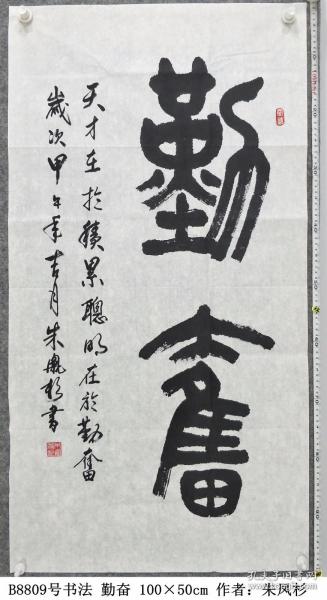 勤奮
天才在於積累聰明在於勤奮
歲次甲午年吉月朱鳳杉書
B8809号书法 勤奋 100×50cm 作者：朱凤杉